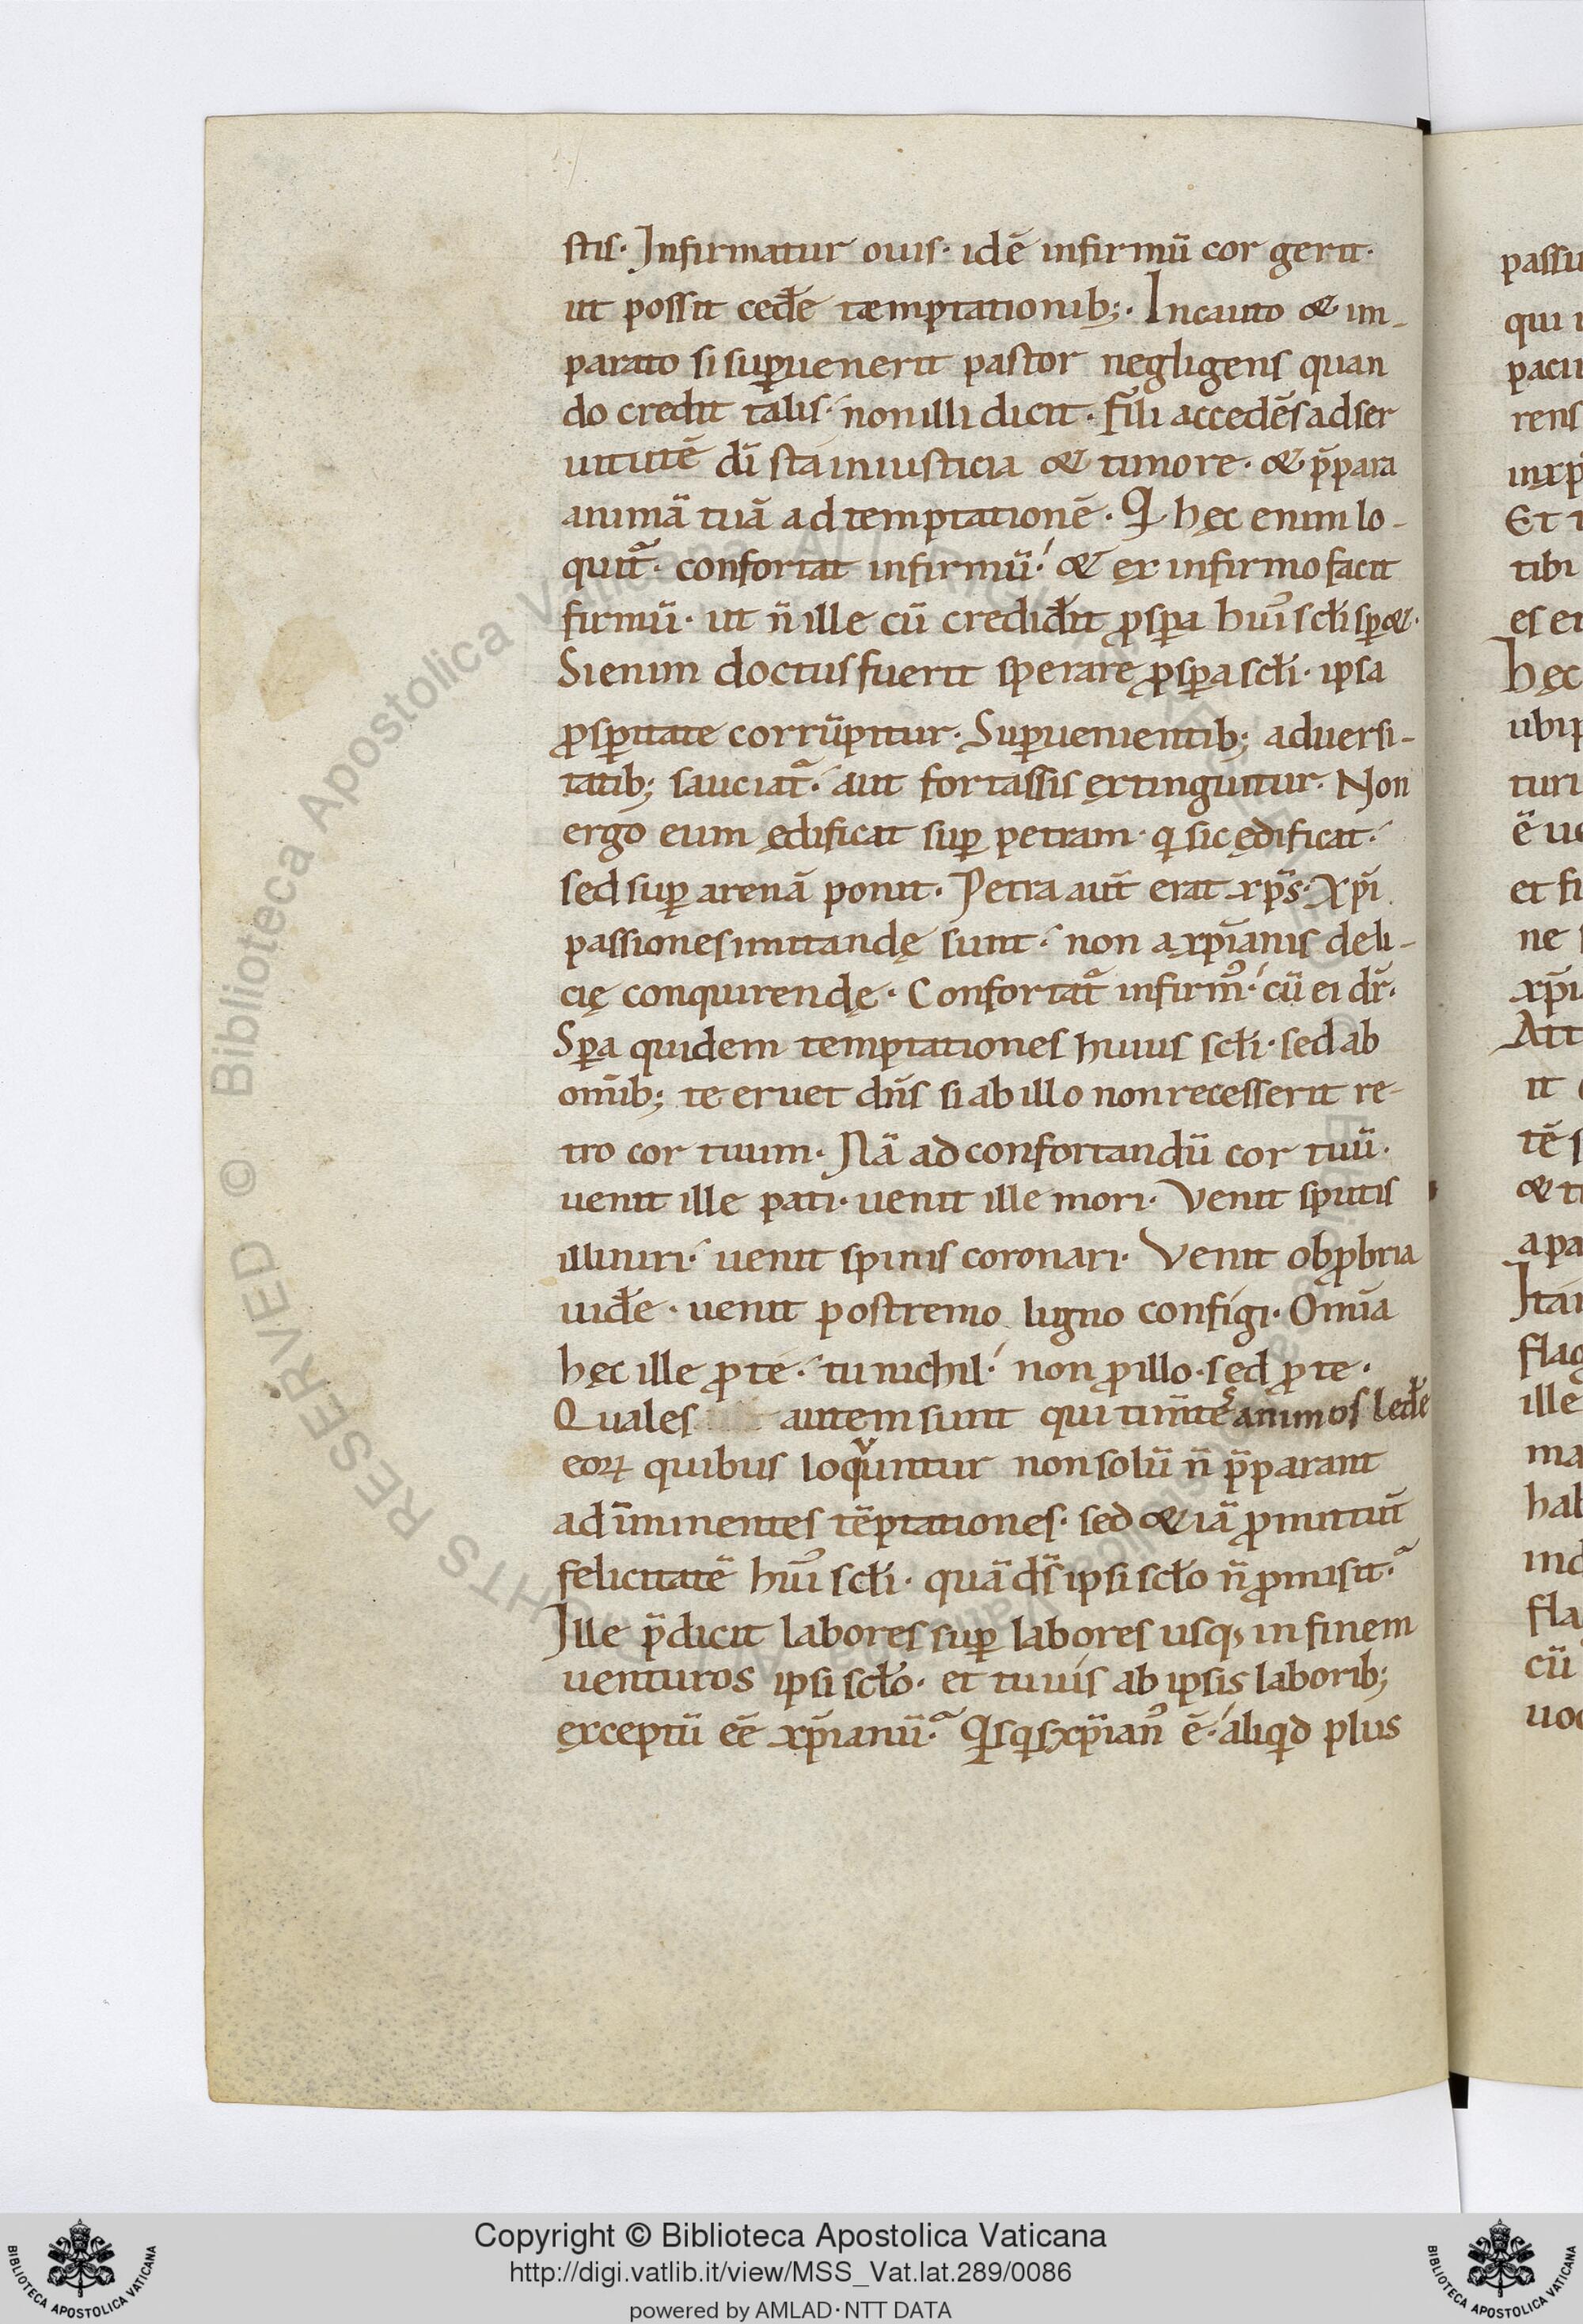 stis· Infirmatur ouis· idē infirmū cor gerit·
ut possit cedẽe tæmptationib;· Incauto & im-
parato si suꝑuenerit pastor negligens quan
do credit talis· non illi dicit· fili accedēs ad ser
uitutē dī sta in iusticia & timore· & p̄para
animā tuā ad temptationē· Q hęc enim lo-
quit᷒· confortat infirmū· & ex infirmo facit
firmū· ut n̄ ille cū credid̄it ꝓsꝑa huiꝰ scłi sꝑ&·
Si enim doctus fuerit sperare ꝓsꝑa scłi· ipsa
ꝓsꝑitate corrūpitur· Suꝑuenientib; aduersi-
tatib; sauciat᷒· aut fortassis extinguitur· Non
ergo eum ędificat suꝑ petram· q sic ędificat·
sed suꝑ arenā ponit· Petra aut̄ erat xp̄s· Xp̄i
passiones imitandę sunt· non a xp̄ianis deli-
cię conquirendę· Confortat᷒ infirmꝰ· cū ei dr̄·
Sꝑa quidem temptationes huius scłi· sed ab
om̄ib; te eruet dn̄s si ab illo non recesserit re-
tro cor tuum· Nā ad confortandū cor tuū·
uenit ille pati· uenit ille mori· Venit sputis
illiniri· uenit spinis coronari· Venit obꝓbria
uid̄e· uenit postremo ligno configi· Om̄ia
hęc ille ꝓ te· tu nichil· non ꝓ illo· sed ꝓ te·
Quales autem sunt qui tim̄tes animos led̄e
eoꝝ quibus loquuntur non solū n̄ p̄parant
ad īminentes tēptationes· sed & iā ꝓmittūt
felicitatē huiꝰ scłi· quā ds̄ ipsi scło n̄ ꝓmisit·
Ille p̄dicit labores suꝑ labores usq; in finem
venturos ipsi scło· et tu uis ab ipsis laborib;
exceptū eē xp̄ianū· Qisqis xp̄ianꝰ ē· aliqid plus
passu
qui i
paciu
rens
in xp
Et t
tibi
es er
hęc
ubi p
turi
ē ue
et fi
ne s
xp̄i
Att
it
tē s
& ti
a pa
Ita
flag
ille
ma
hab
ind
fla
cū
uoc
Copyright © Biblioteca Apostolica Vaticana
http://digi.vatlib.it/view/MSS_Vat.lat.289/0086
powered by AMLAD·NTT DATA